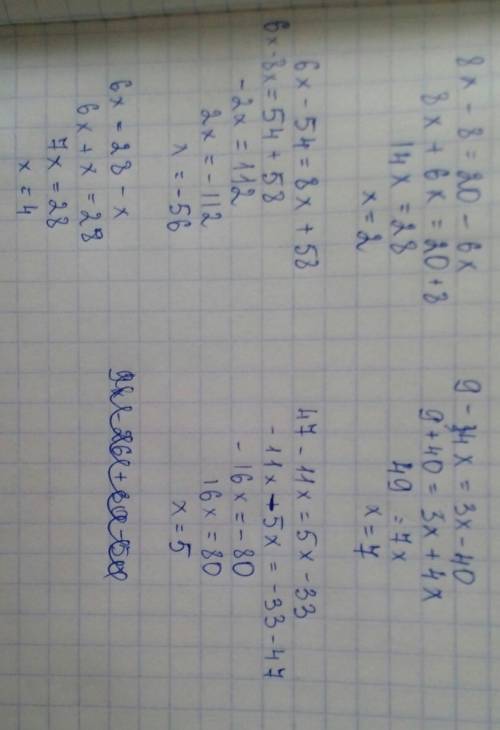 8x - 8 = 20 - 6x
8x + 6x = 20 + 8
14x = 28
x = 2
6x - 54 = 8x + 58
6x - 8x = 54 + 58
-2x = 112
2x = -112
x = -56
6x = 28 - x
6x + x = 28
7x = 28
x = 4
9 - 4x = 3x - 40
9 + 40 = 3x + 4x
49 = 7x
x = 7
47 - 11x = 5x - 33
-11x - 5x = -33 - 47
-16x = -80
16x = 80
x = 5